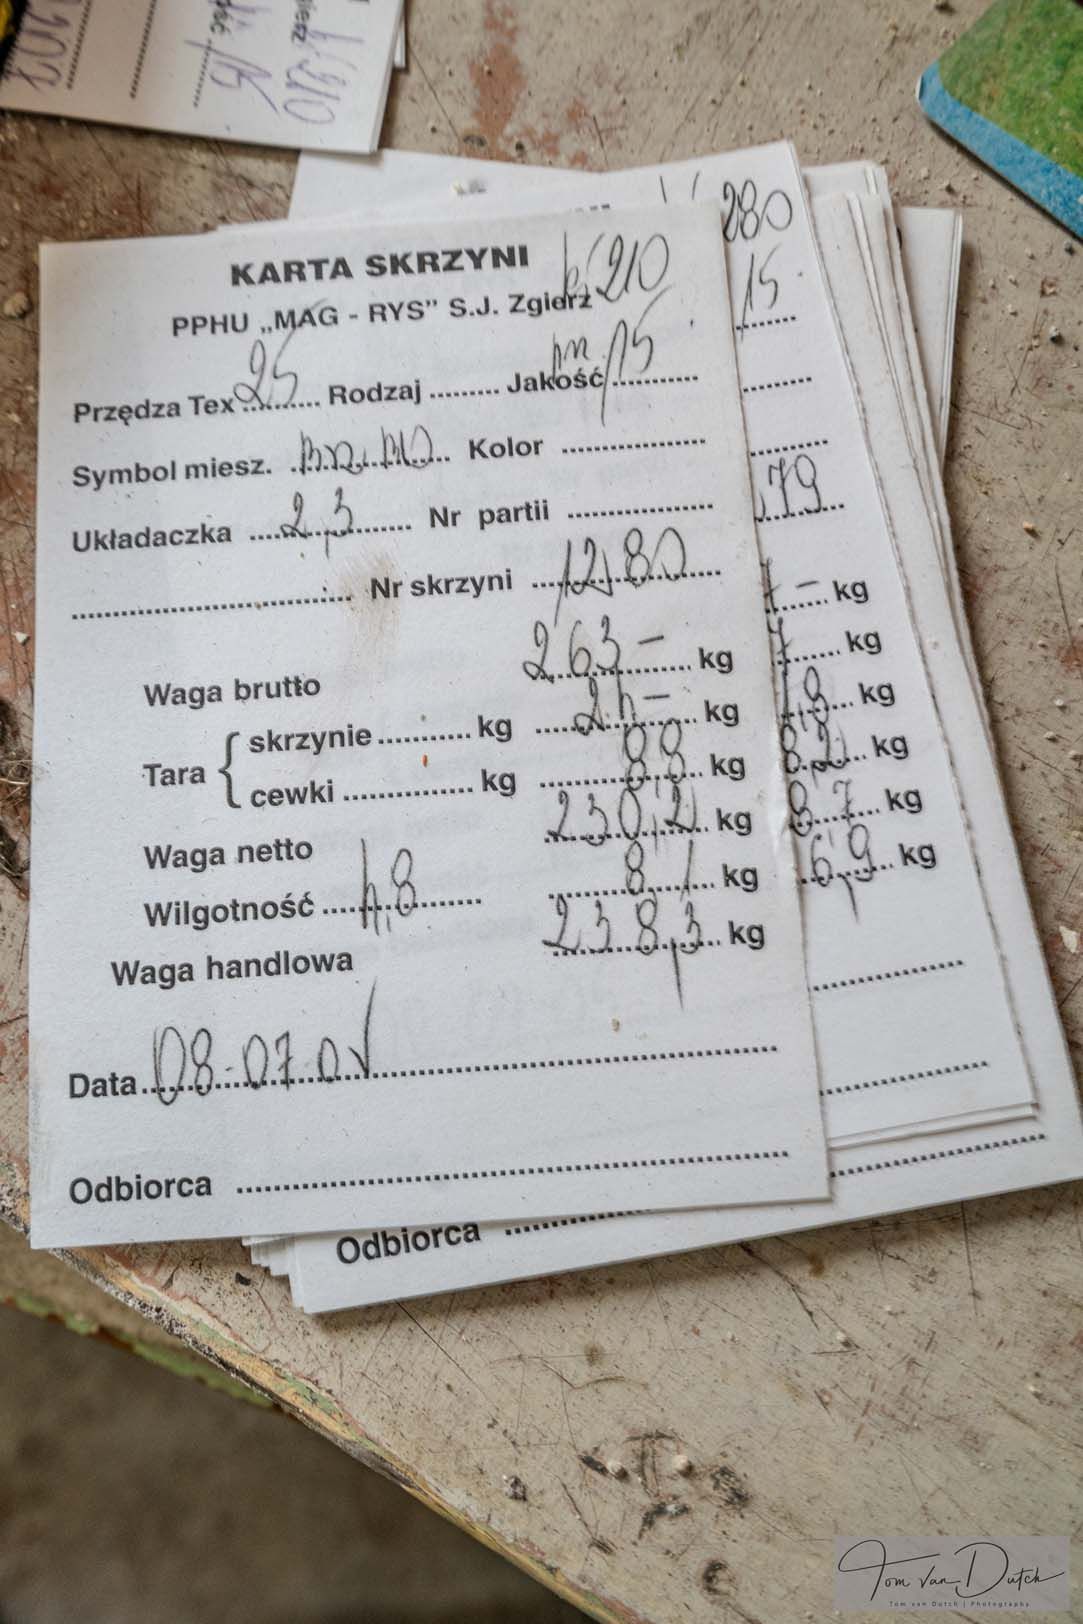 280
15
KARTA SKRZYNI k/210
PPHU „MAG - RYS” S.J. Zgierz
Przędza Tex 25 Rodzaj ......... Jakość /15
Symbol miesz. Kolor
Układaczka 2,3 Nr partii
79
Nr skrzyni 12,80
kg
Waga brutto 263 – kg
kg
Tara { skrzynie ........... kg kg
kg
cewki ............... kg 8,8 kg
8,2 kg
Waga netto 230,2 kg
8,7 kg
Wilgotność 4,8 8,1 kg
6,9 kg
Waga handlowa 238,3 kg
Data
Odbiorca
Odbiorca
Tom van Dutch
Tom van Dutch | Photography